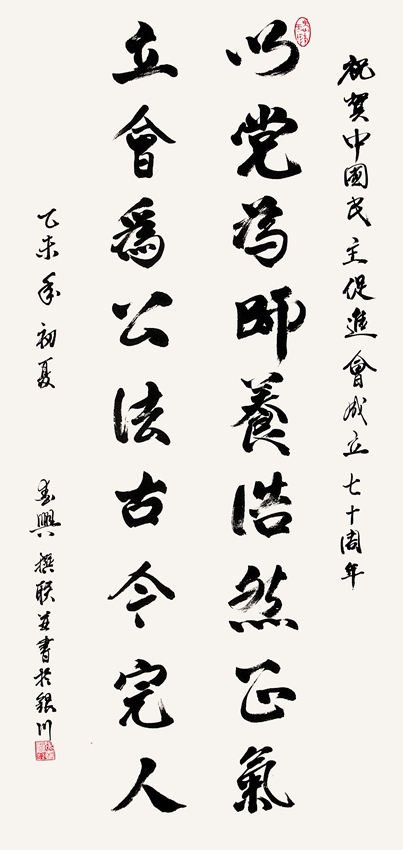 祝贺中國民主促進會成立七十周年
以党為師養浩然正氣
立會為公法古今完人
乙未年初夏
興撰联並書於銀川